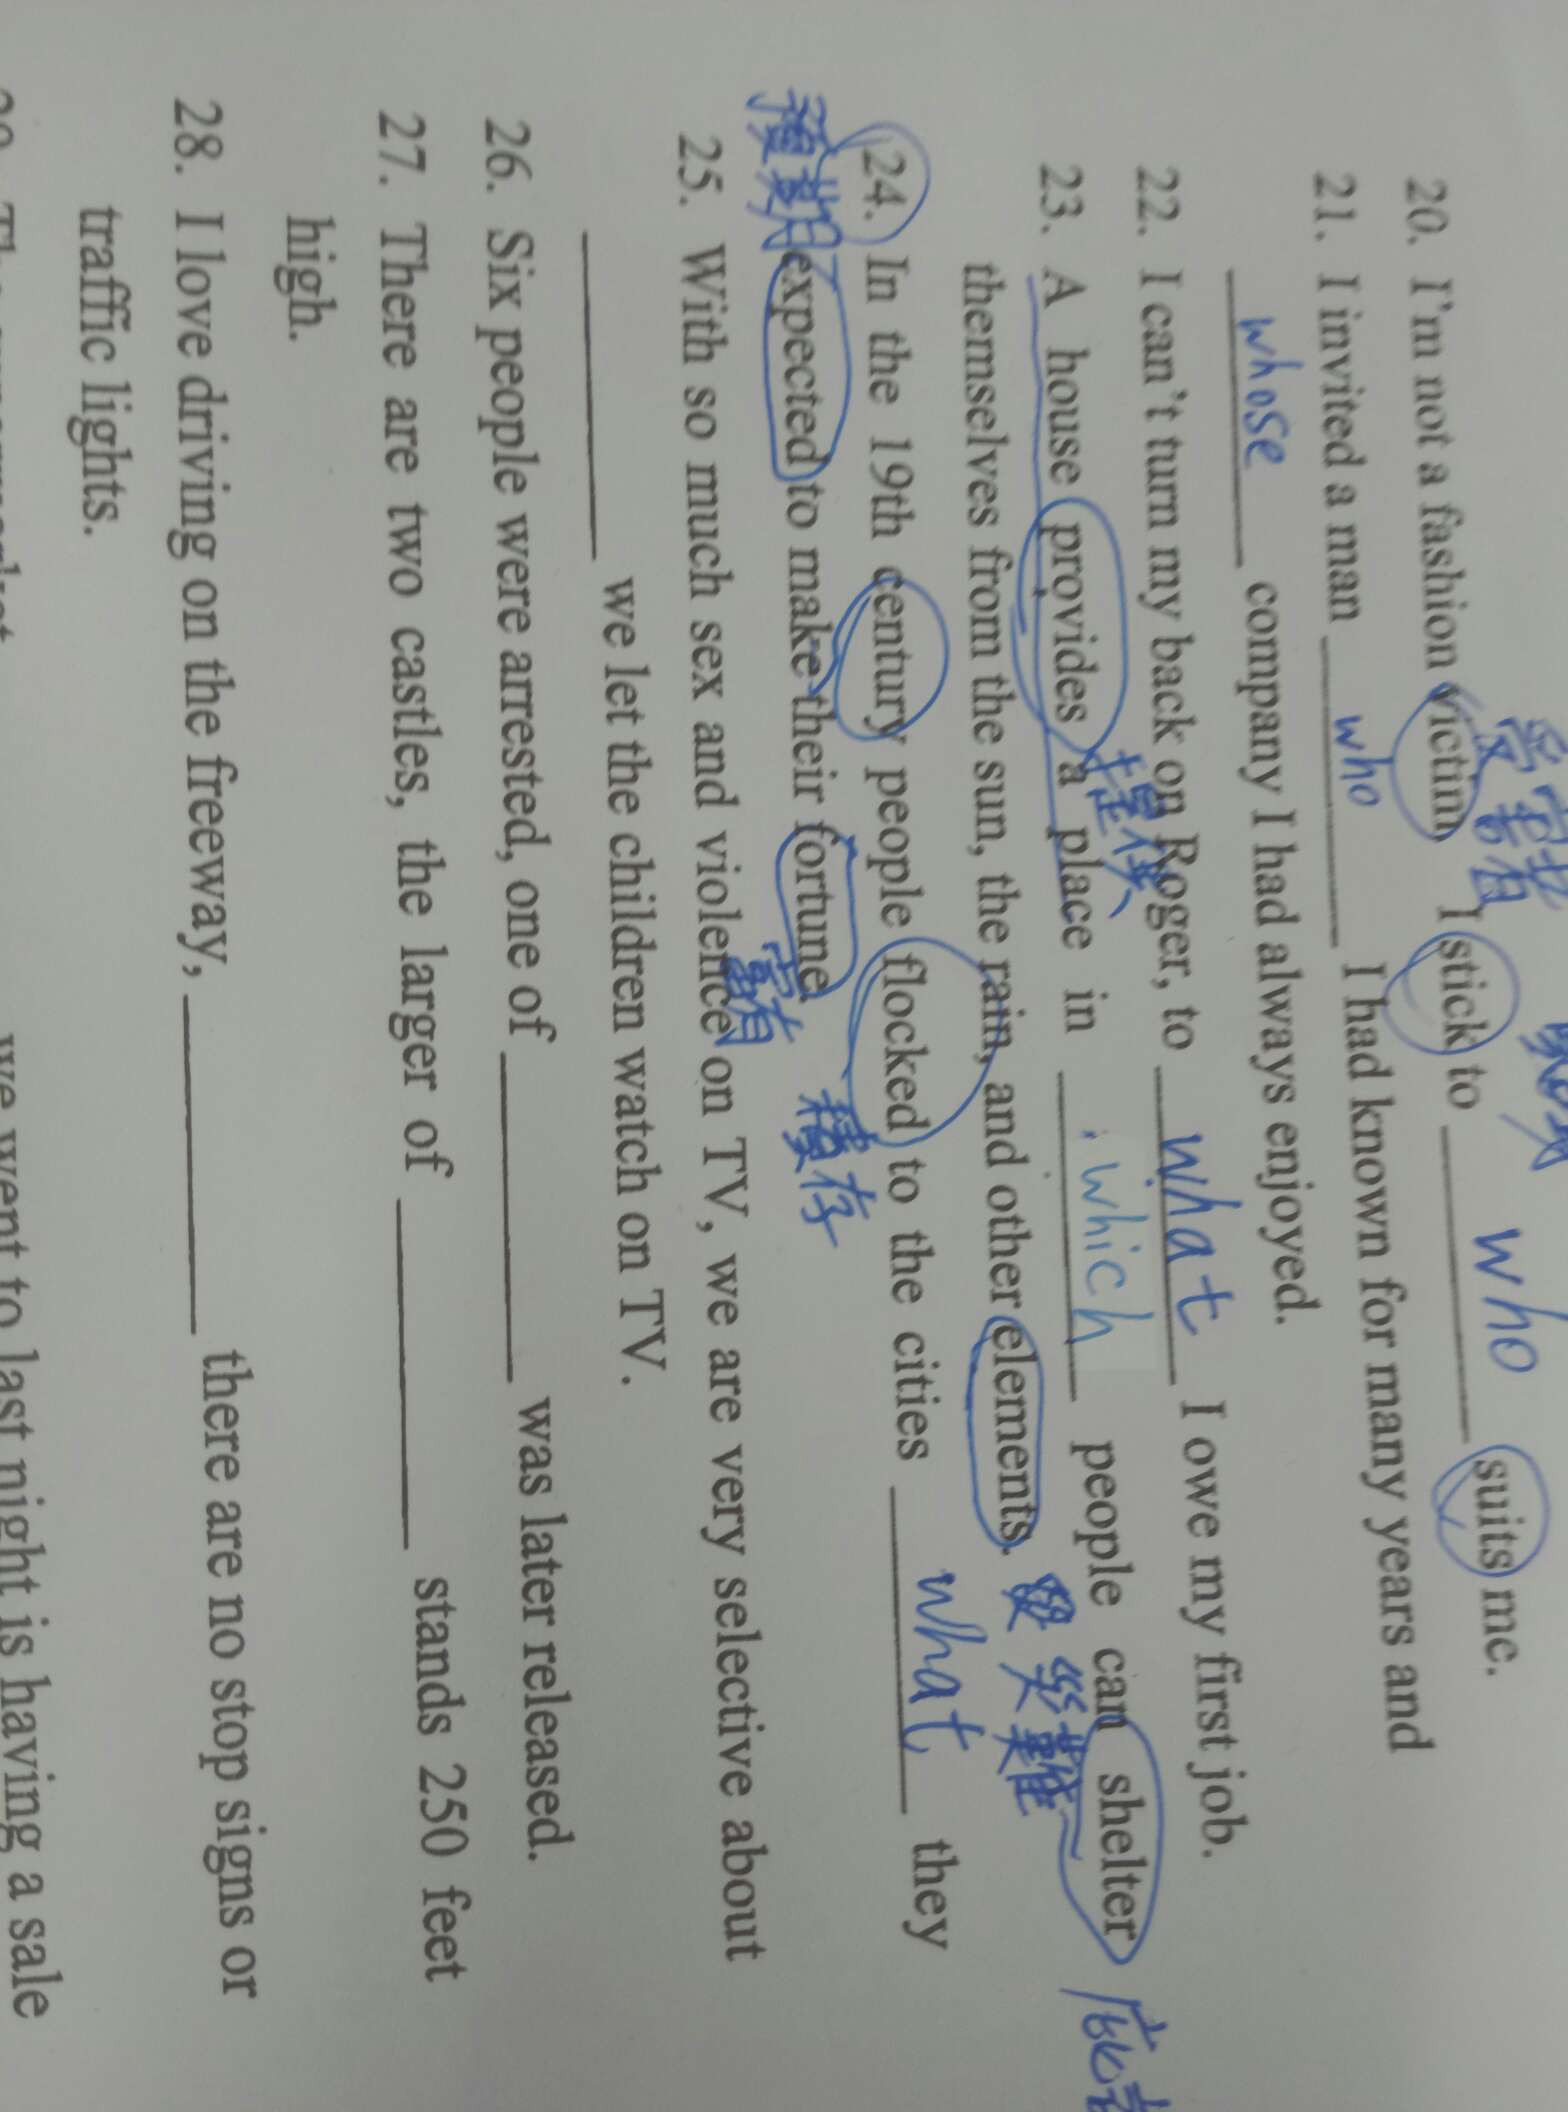 受害者
20. I'm not a fashion victim. I stick to who suits me.
21. I invited a man who I had known for many years and
whose company I had always enjoyed.
22. I can't turn my back on Roger, to what I owe my first job.
提供
23. A house provides a place in which people can shelter
themselves from the sun, the rain, and other elements.
24. In the 19th century people flocked to the cities what they
預期 expected to make their fortune.
25. With so much sex and violence on TV, we are very selective about
we let the children watch on TV.
26. Six people were arrested, one of was later released.
27. There are two castles, the larger of stands 250 feet
high.
28. I love driving on the freeway, there are no stop signs or
traffic lights.
we went to last night is having a sale